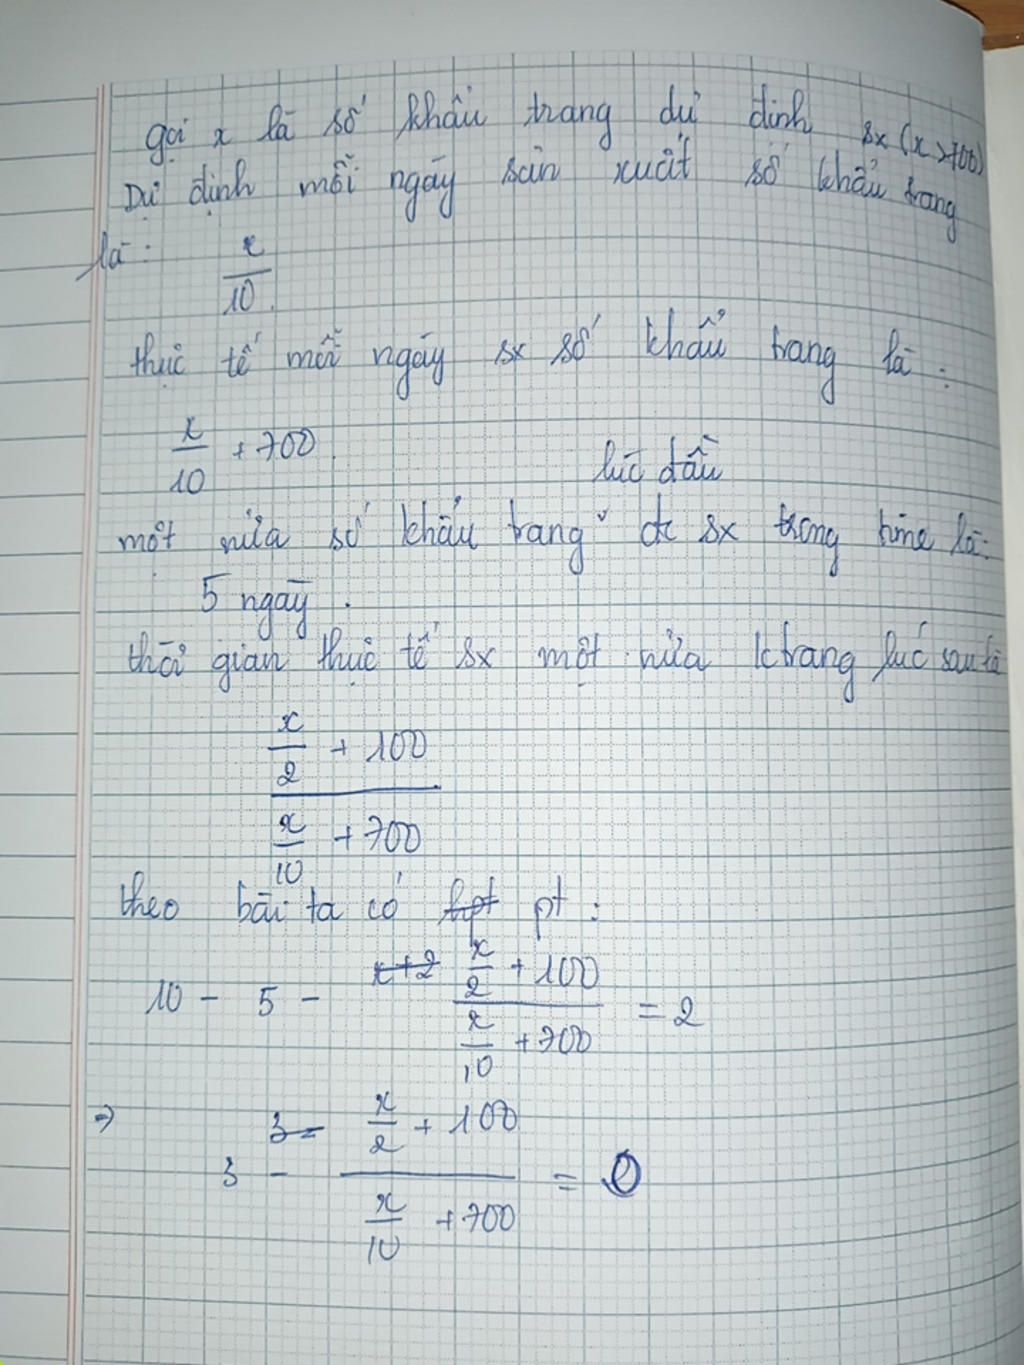 gọi x là số khẩu trang dự định sx (x>700)
Dự định mỗi ngày sản xuất số khẩu trang
là: x/10.
thực tế mỗi ngày sx số khẩu trang là:
x/10 + 700.
lúc đầu
một nửa số khẩu trang ˅ đc sx trong time là:
5 ngày.
thời gian thực tế sx một nửa ktrang lúc sau là
(x/2 + 100)/(x/10 + 700)
theo bài ta có hpt pt:
10 - 5 - x+2 (x/2 + 100)/(x/10 + 700) = 2
⇒ 3 -
3 - (x/2 + 100)/(x/10 + 700) = 0